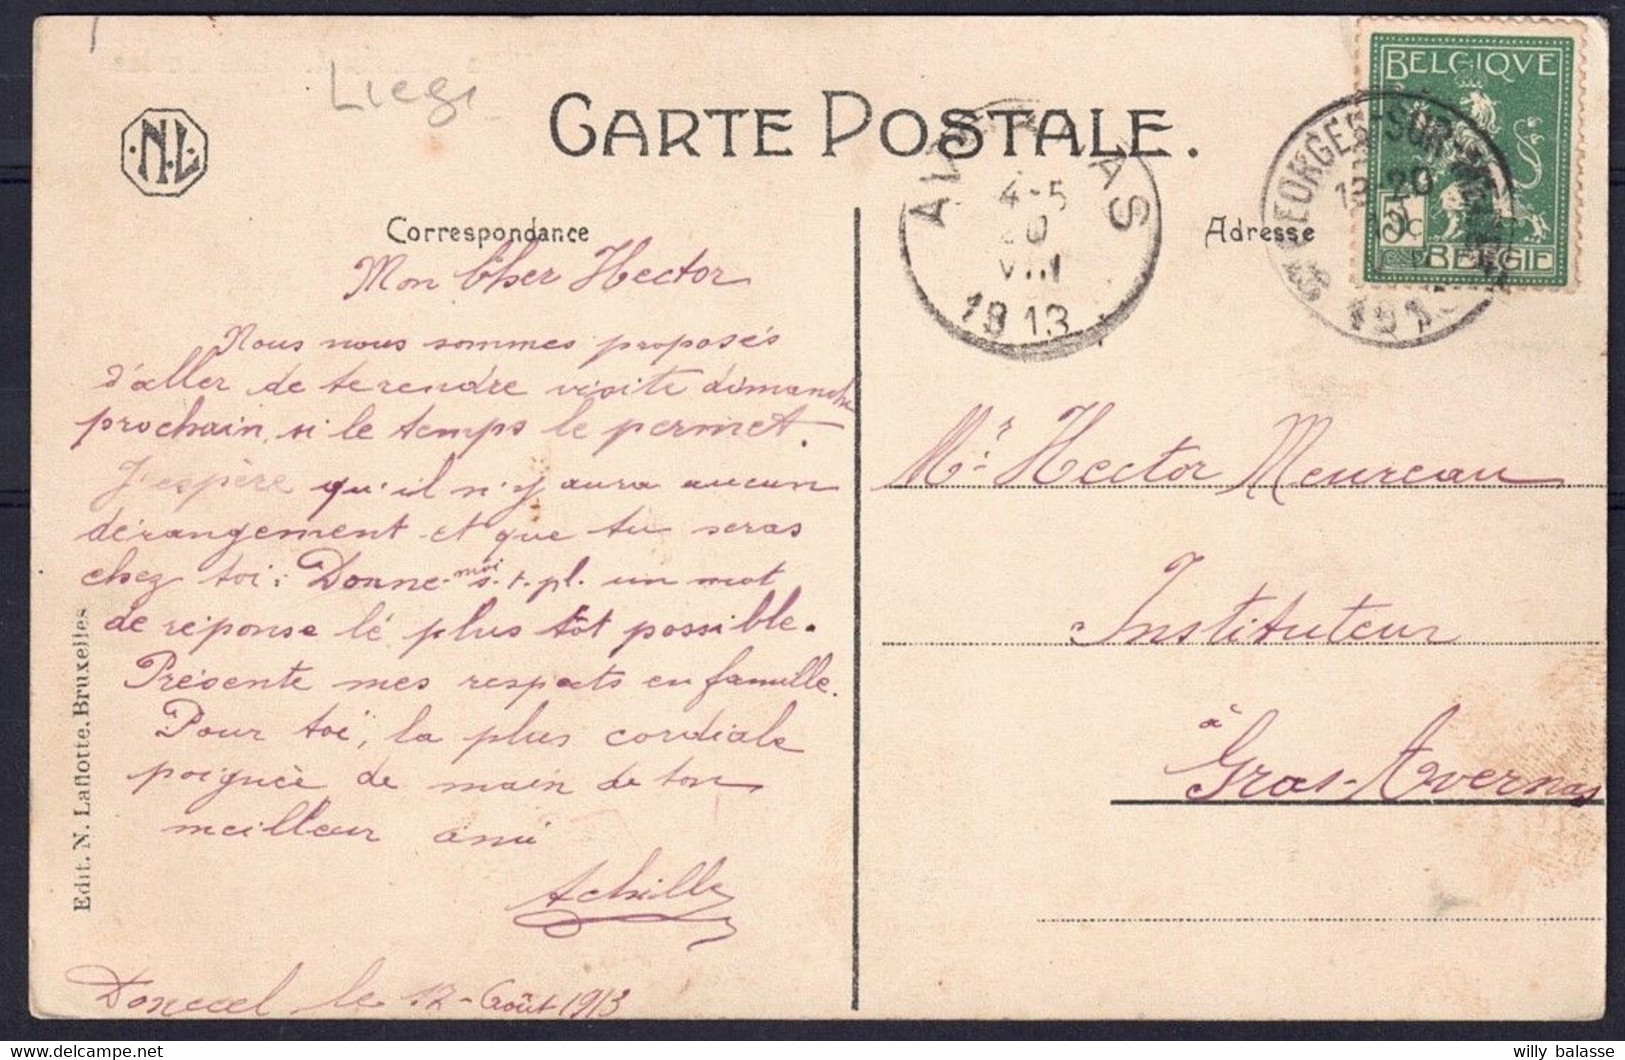 Liege
CARTE POSTALE.
N.L.
Correspondance
Adresse
BELGIQVE
5c
BELGIË
GEORGES-SUR-MEUSE
1913
AV AS
4-5
20
VIII
1913
Mon Cher Hector
Nous nous sommes proposés
d'aller de te rendre visite dimanche
prochain, si le temps le permet.
J'espère qu'il n'y aura aucun
dérangement et que tu seras
chez toi. Donne-moi s.t.pl. un mot
de réponse le plus tôt possible.
Présente mes respects en famille.
Pour toi, la plus cordiale
poignée de main de ton
meilleur ami
Achille
le 12 Août 1913
Mr Hector Meureau
Instituteur
à
Gras-Avernas
Edit. N. Laflotte, Bruxelles
willy balasse